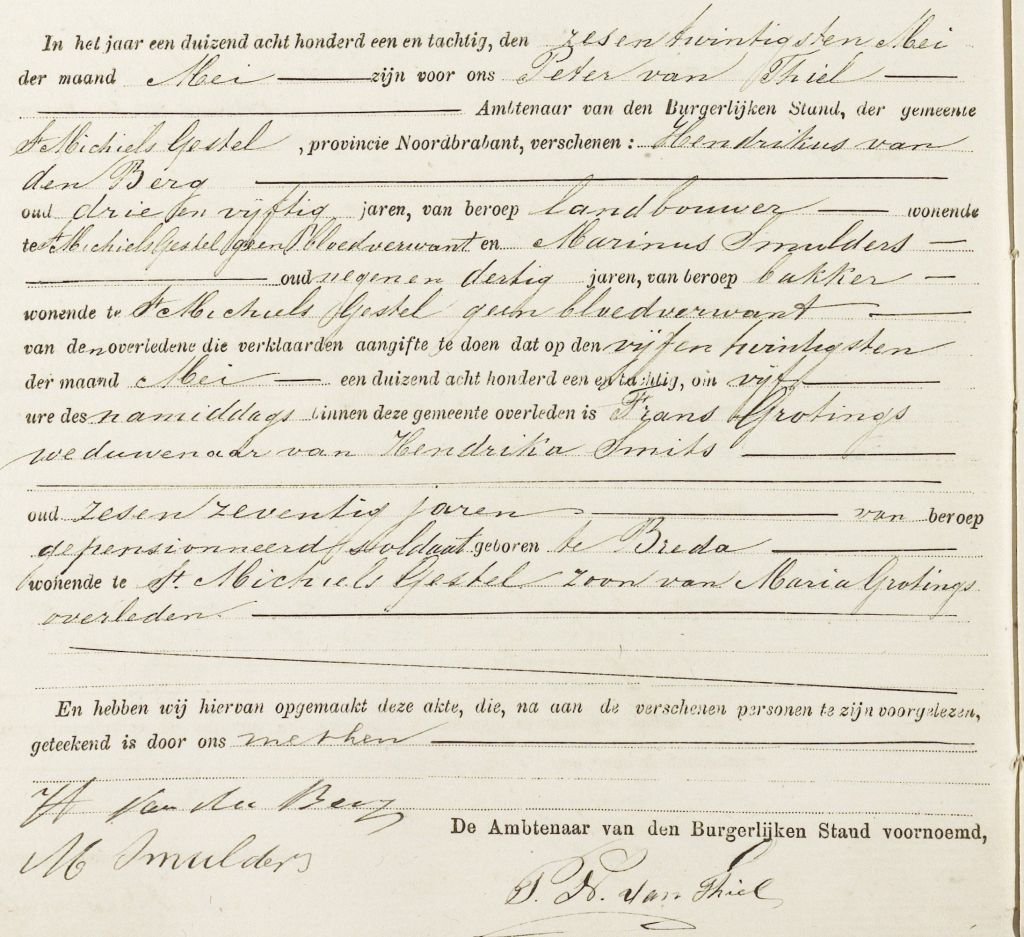 In het jaar een duizend acht honderd een en tachtig, den zesentwintigsten Mei
der maand Mei zijn voor ons Peter van Thiel
Ambtenaar van den Burgerlijken Stand, der gemeente
St Michiels Gestel , provincie Noordbrabant, verschenen: Hendrikus van
den Berg
oud drie en vijftig jaren, van beroep landbouwer wonende
te St Michiels Gestel geen bloedverwant en Marinus Smulders
oud negen en dertig jaren, van beroep bakker
wonende te St Michiels Gestel geen bloedverwant
van den overledene die verklaarden aangifte te doen dat op den vijf en twintigsten
der maand Mei een duizend acht honderd een en tachtig, om vijf
ure des namiddags binnen deze gemeente overleden is Frans Grotings
weduwenaar van Hendrika Smits
oud zes en zeventig jaren van beroep
gepensionneerd soldaat geboren te Breda
wonende te St. Michiels Gestel zoon van Maria Grotings
overleden.
En hebben wij hiervan opgemaakt deze akte, die, na aan de verschenen personen te zijn voorgelezen,
geteekend is door ons met hen
H Van den Berg
De Ambtenaar van den Burgerlijken Stand voornoemd,
M Smulders
P. N. van Thiel